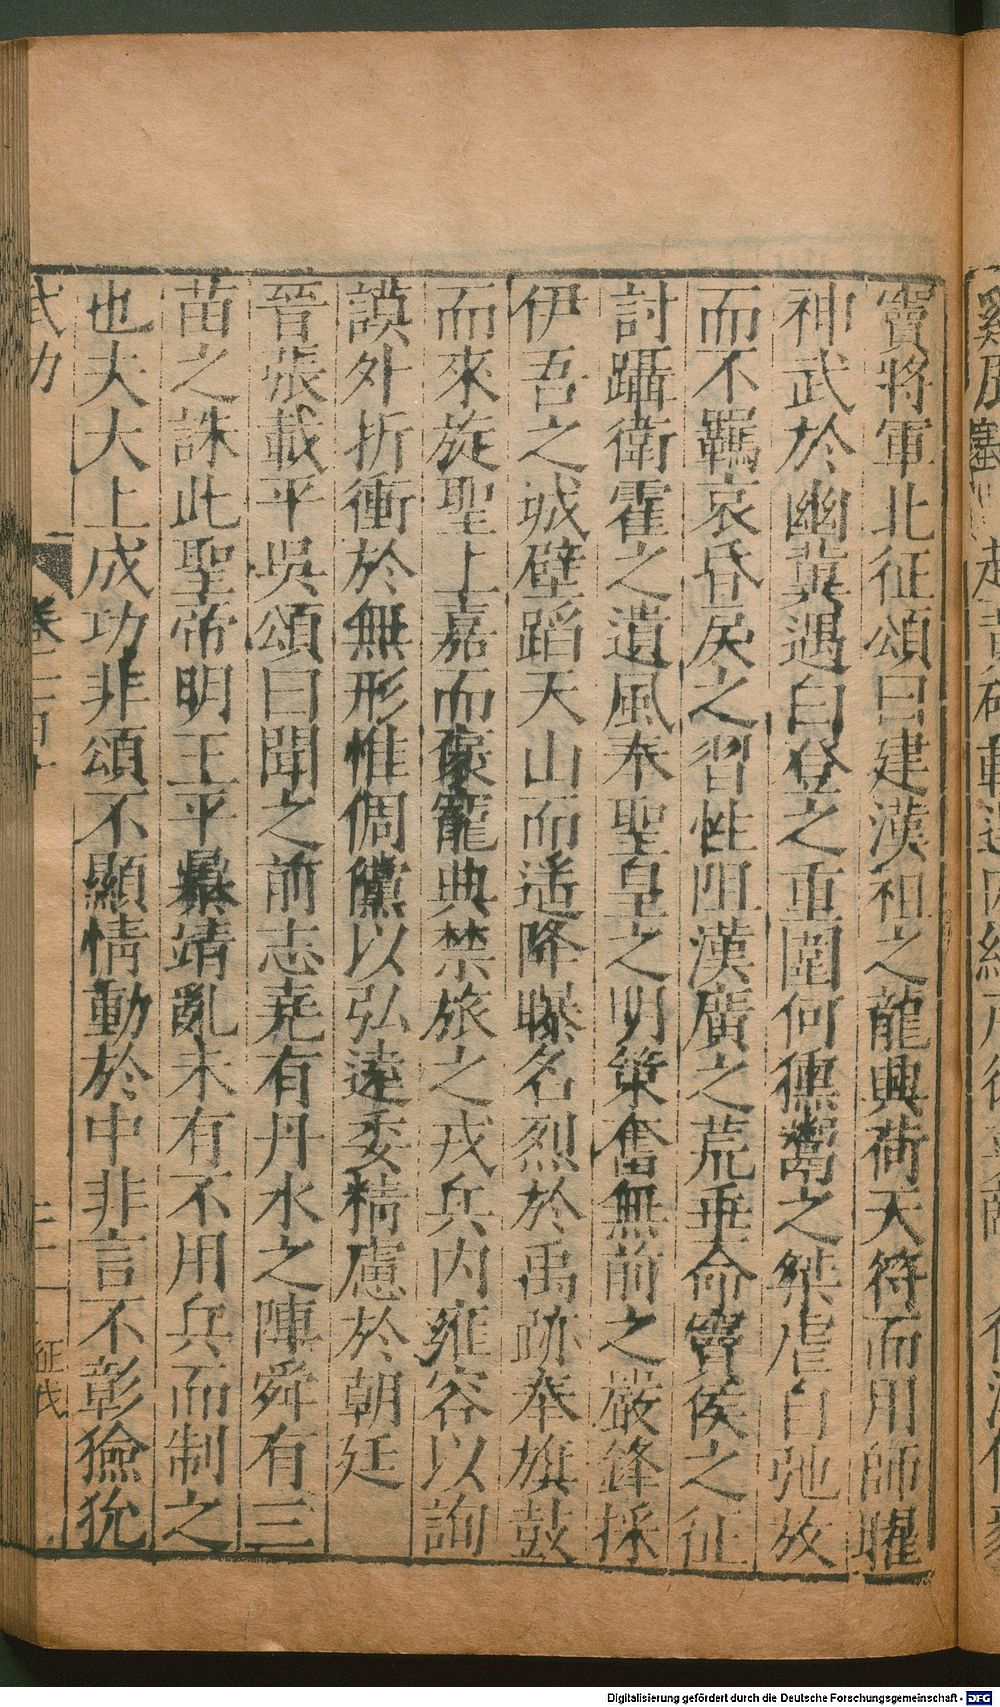 竇將軍北征頌曰建漢祖之龍興荷天符而用師曜
神武於幽冀遇白登之重圍何獯鬻之桀虐自弛放
而不羈哀昏戾之習性阻漢廣之荒垂命竇侯之征
討躡衛霍之遺風奉聖皇之明策奮無前之嚴鋒採
伊吾之城壁蹈天山而遙降曝名烈於禹跡奉旗鼓
而來旋聖上嘉而褒寵典禁旅之戎兵內雍容以詢
謨外折衝於無形惟倜儻以弘遠委精慮於朝廷
晉張載平吳頌曰聞之前志堯有丹水之陣舜有三
苗之誅此聖帝明王平暴靖亂未有不用兵而制之
也夫大上成功非頌不顯情動於中非言不彰獫狁
武功 卷二百 征伐
Digitalisierung gefördert durch die Deutsche Forschungsgemeinschaft - DFG